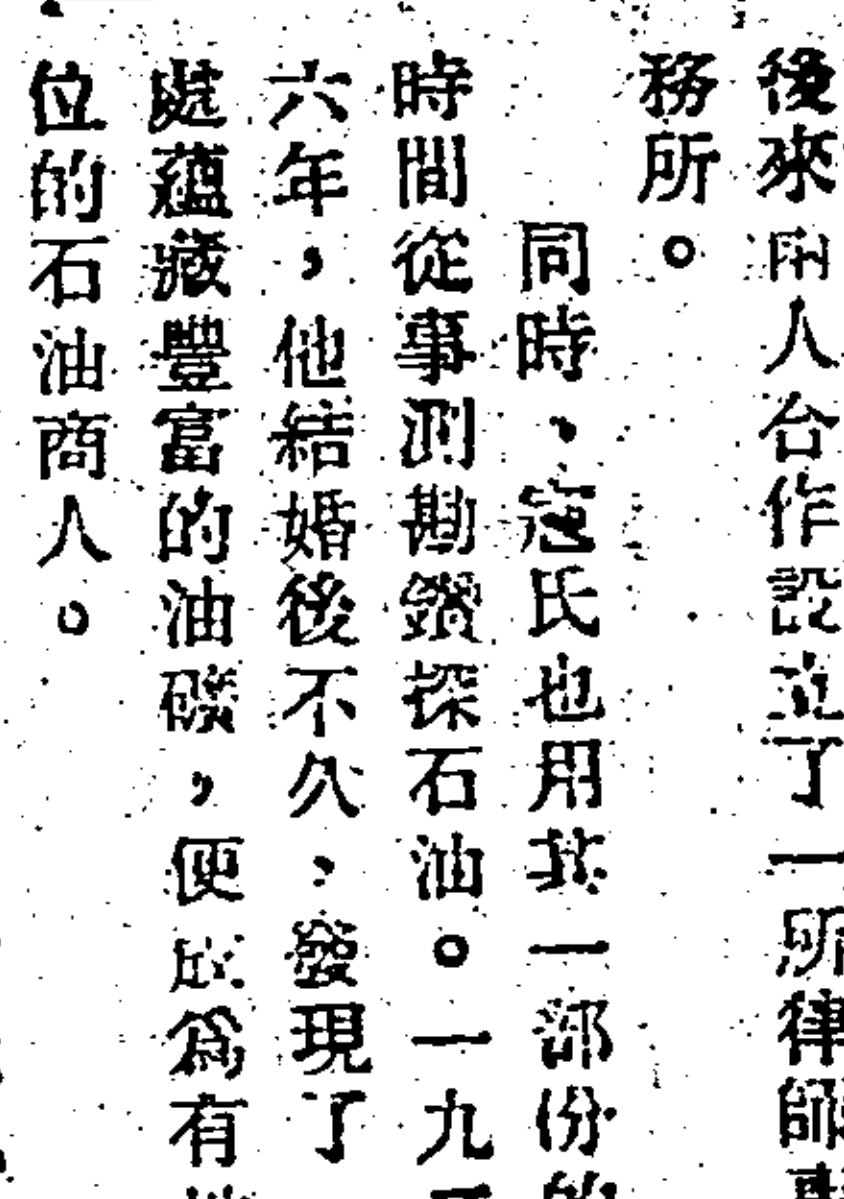 後來兩人合作設立了一所律師事
務所。
同時，寇氏也用其一部份的
時間從事測勘鑽探石油。一九
六年，他結婚後不久，發現了
處蘊藏豐富的油礦，便成爲有
位的石油商人。